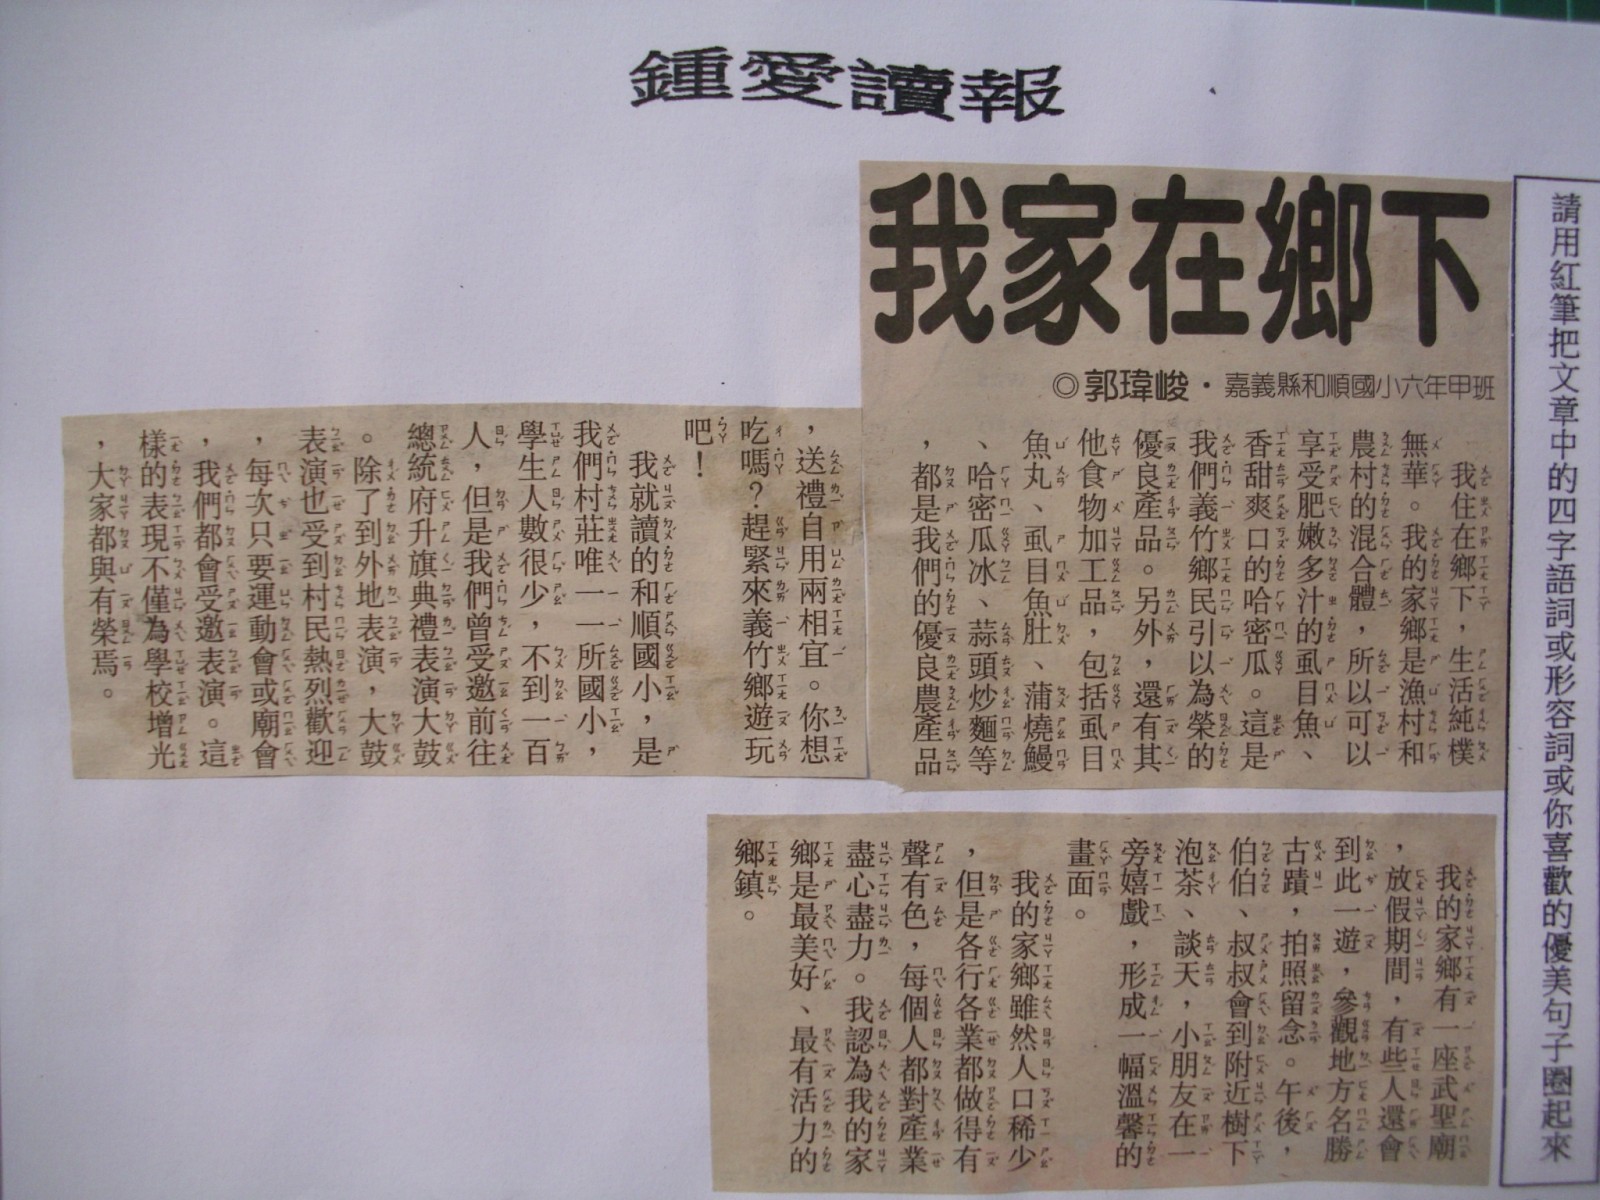 鍾愛讀報
請用紅筆把文章中的四字語詞或形容詞或你喜歡的優美句子圈起來
我家在鄉下
◎郭瑋峻・嘉義縣和順國小六年甲班
我住在鄉下，生活純樸
無華。我的家鄉是漁村和
農村的混合體，所以可以
享受肥嫩多汁的虱目魚、
香甜爽口的哈密瓜。這是
我們義竹鄉民引以為榮的
優良產品。另外，還有其
他食物加工品，包括虱目
魚丸、虱目魚肚、蒲燒鰻
、哈密瓜冰、蒜頭炒麵等
，都是我們的優良農產品
，送禮自用兩相宜。你想
吃嗎？趕緊來義竹鄉遊玩
吧！
我就讀的和順國小，是
我們村莊唯一一所國小，
學生人數很少，不到一百
人，但是我們曾受邀前往
總統府升旗典禮表演大鼓
。除了到外地表演，大鼓
表演也受到村民熱烈歡迎
，每次只要運動會或廟會
，我們都會受邀表演。這
樣的表現不僅為學校增光
，大家都與有榮焉。
我的家鄉有一座武聖廟
，放假期間，有些人還會
到此一遊，參觀地方名勝
古蹟，拍照留念。午後，
伯伯、叔叔會到附近樹下
泡茶、談天，小朋友在一
旁嬉戲，形成一幅溫馨的
畫面。
我的家鄉雖然人口稀少
，但是各行各業都做得有
聲有色，每個人都對產業
盡心盡力。我認為我的家
鄉是最美好、最有活力的
鄉鎮。